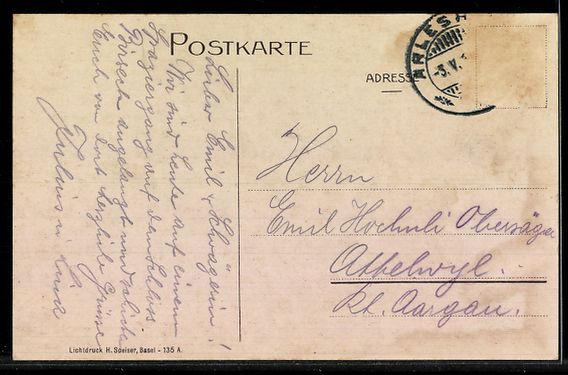 POSTKARTE
ADRESSE
ARLESH
-3.V.
Lieber Emil & Schwägerin!
Wir sind heute auf einem
Spaziergang auf dem Schloss
Birseck angelangt und
Euch von dort herzliche Grüsse
Julius
Herrn
Emil Hochuli Obersäger
Attelwyl.
Kt. Aargau.
Lichtdruck H. Speiser, Basel - 135 A.